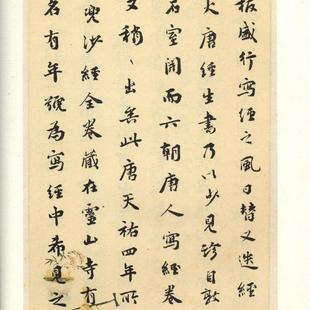 板盛行寫經之風日替又迭經
火唐經生書乃以少見珍自敦
石室開而六朝唐人寫經卷
又稍〻出矣此唐天祐四年所
兜沙經全卷藏在靈山寺有
名有年號為寫經中希見之